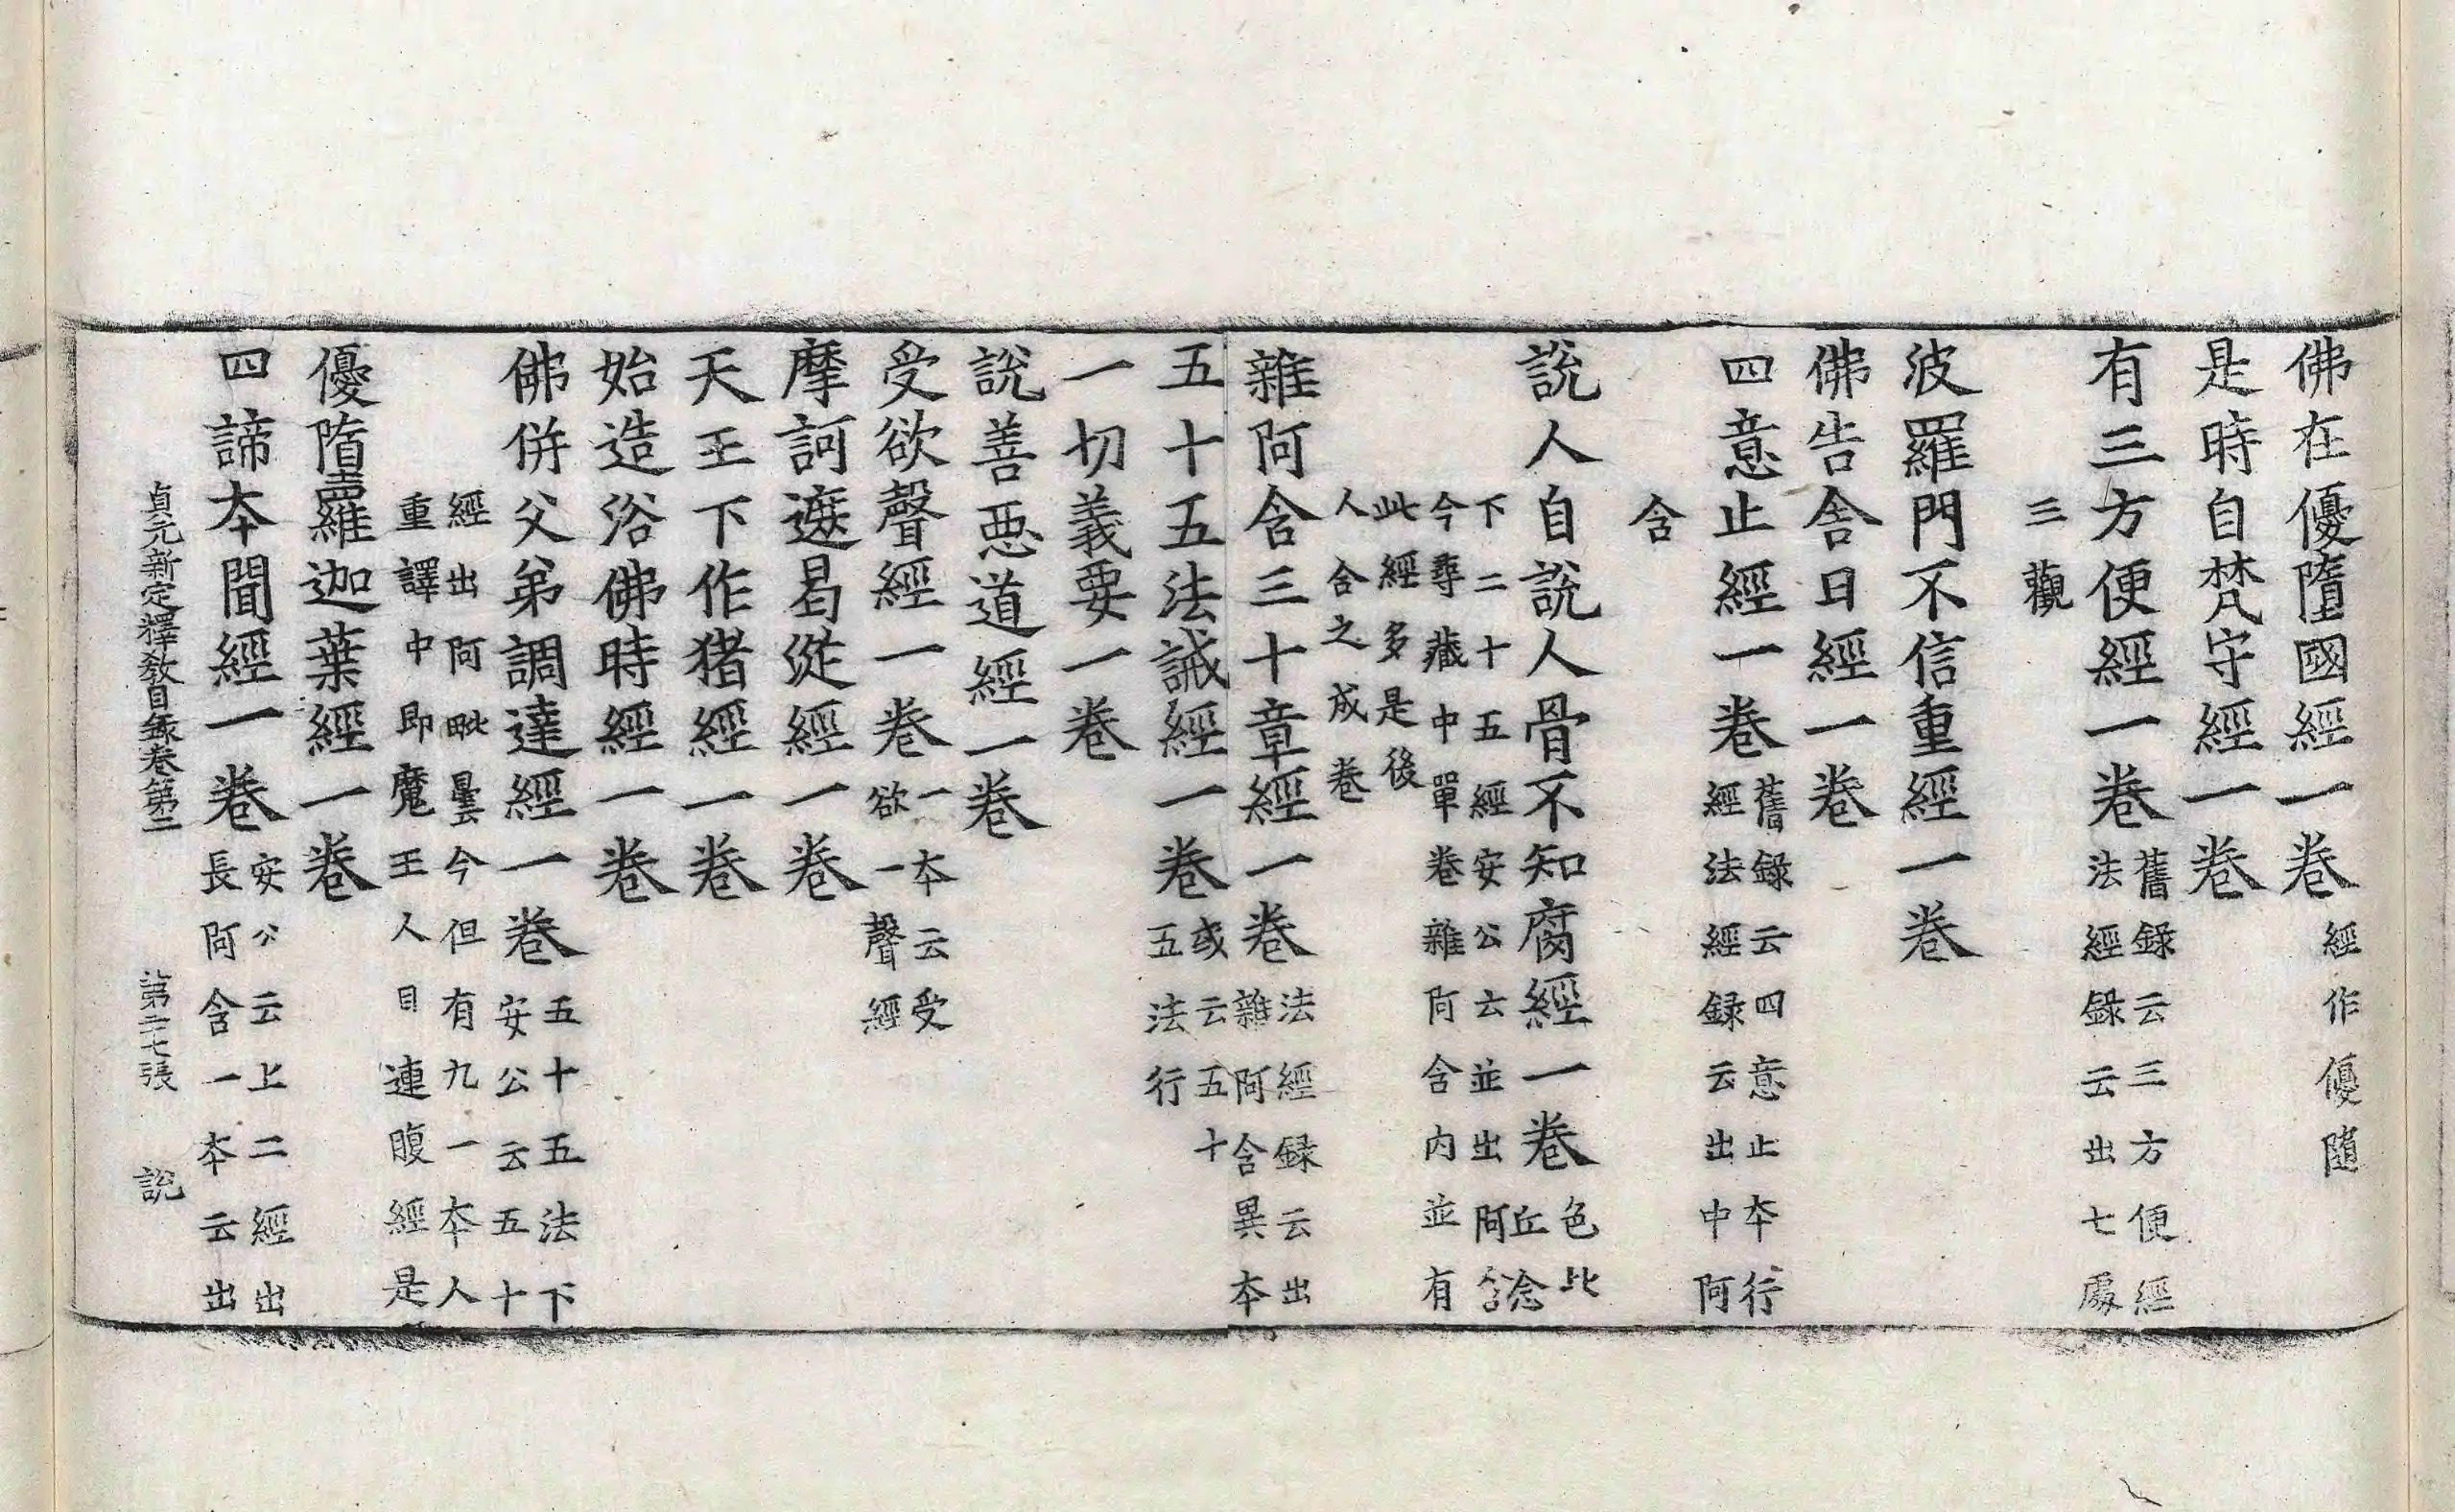 佛在優墮國經一卷經作優隨
是時自梵守經一卷
有三方便經一卷舊録云三方便經法經録云出七處
三觀
波羅門不信重經一卷
佛告舎日經一卷
四意止經一卷舊録云四意止夲行經法經録云出中阿
含
說人自說人骨不知腐經一卷色比丘念
下二十五經安公云並出阿含今尋藏中單卷雜阿含内並有
此經多是後人合之成卷
雜阿含三十章經一卷法經録云出雜阿含異夲
五十五法誡經一卷或云五十五法行
一切義要一卷
說善惡道經一卷
受欲聲經一卷一夲云受欲一聲經
摩訶遮曷漩經一卷
天王下作猪經一卷
始造浴佛時經一卷
佛併父弟調達經一卷五十五法下安公云五十
經出阿毗曇今但有九一夲人重譯中即魔王人目連腹經是
優墮羅迦葉經一卷
四諦夲聞經一卷安公云上二經出長阿含一夲云出
貞元新定釋教目録卷第二　第二十七張　說